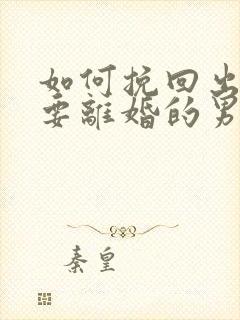 如何挽回出
要離婚的男
秦皇